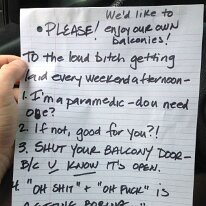 We'd like to
• PLEASE! enjoy our own
balconies!
To the loud bitch getting
laid every weekend afternoon-
1. I'm a paramedic - do u need
one?
2. If not, good for you?!
3. SHUT YOUR BALCONY DOOR-
B/C U KNOW IT'S OPEN.
4 "OH SHIT" + "OH FUCK" is
GETTING BORING